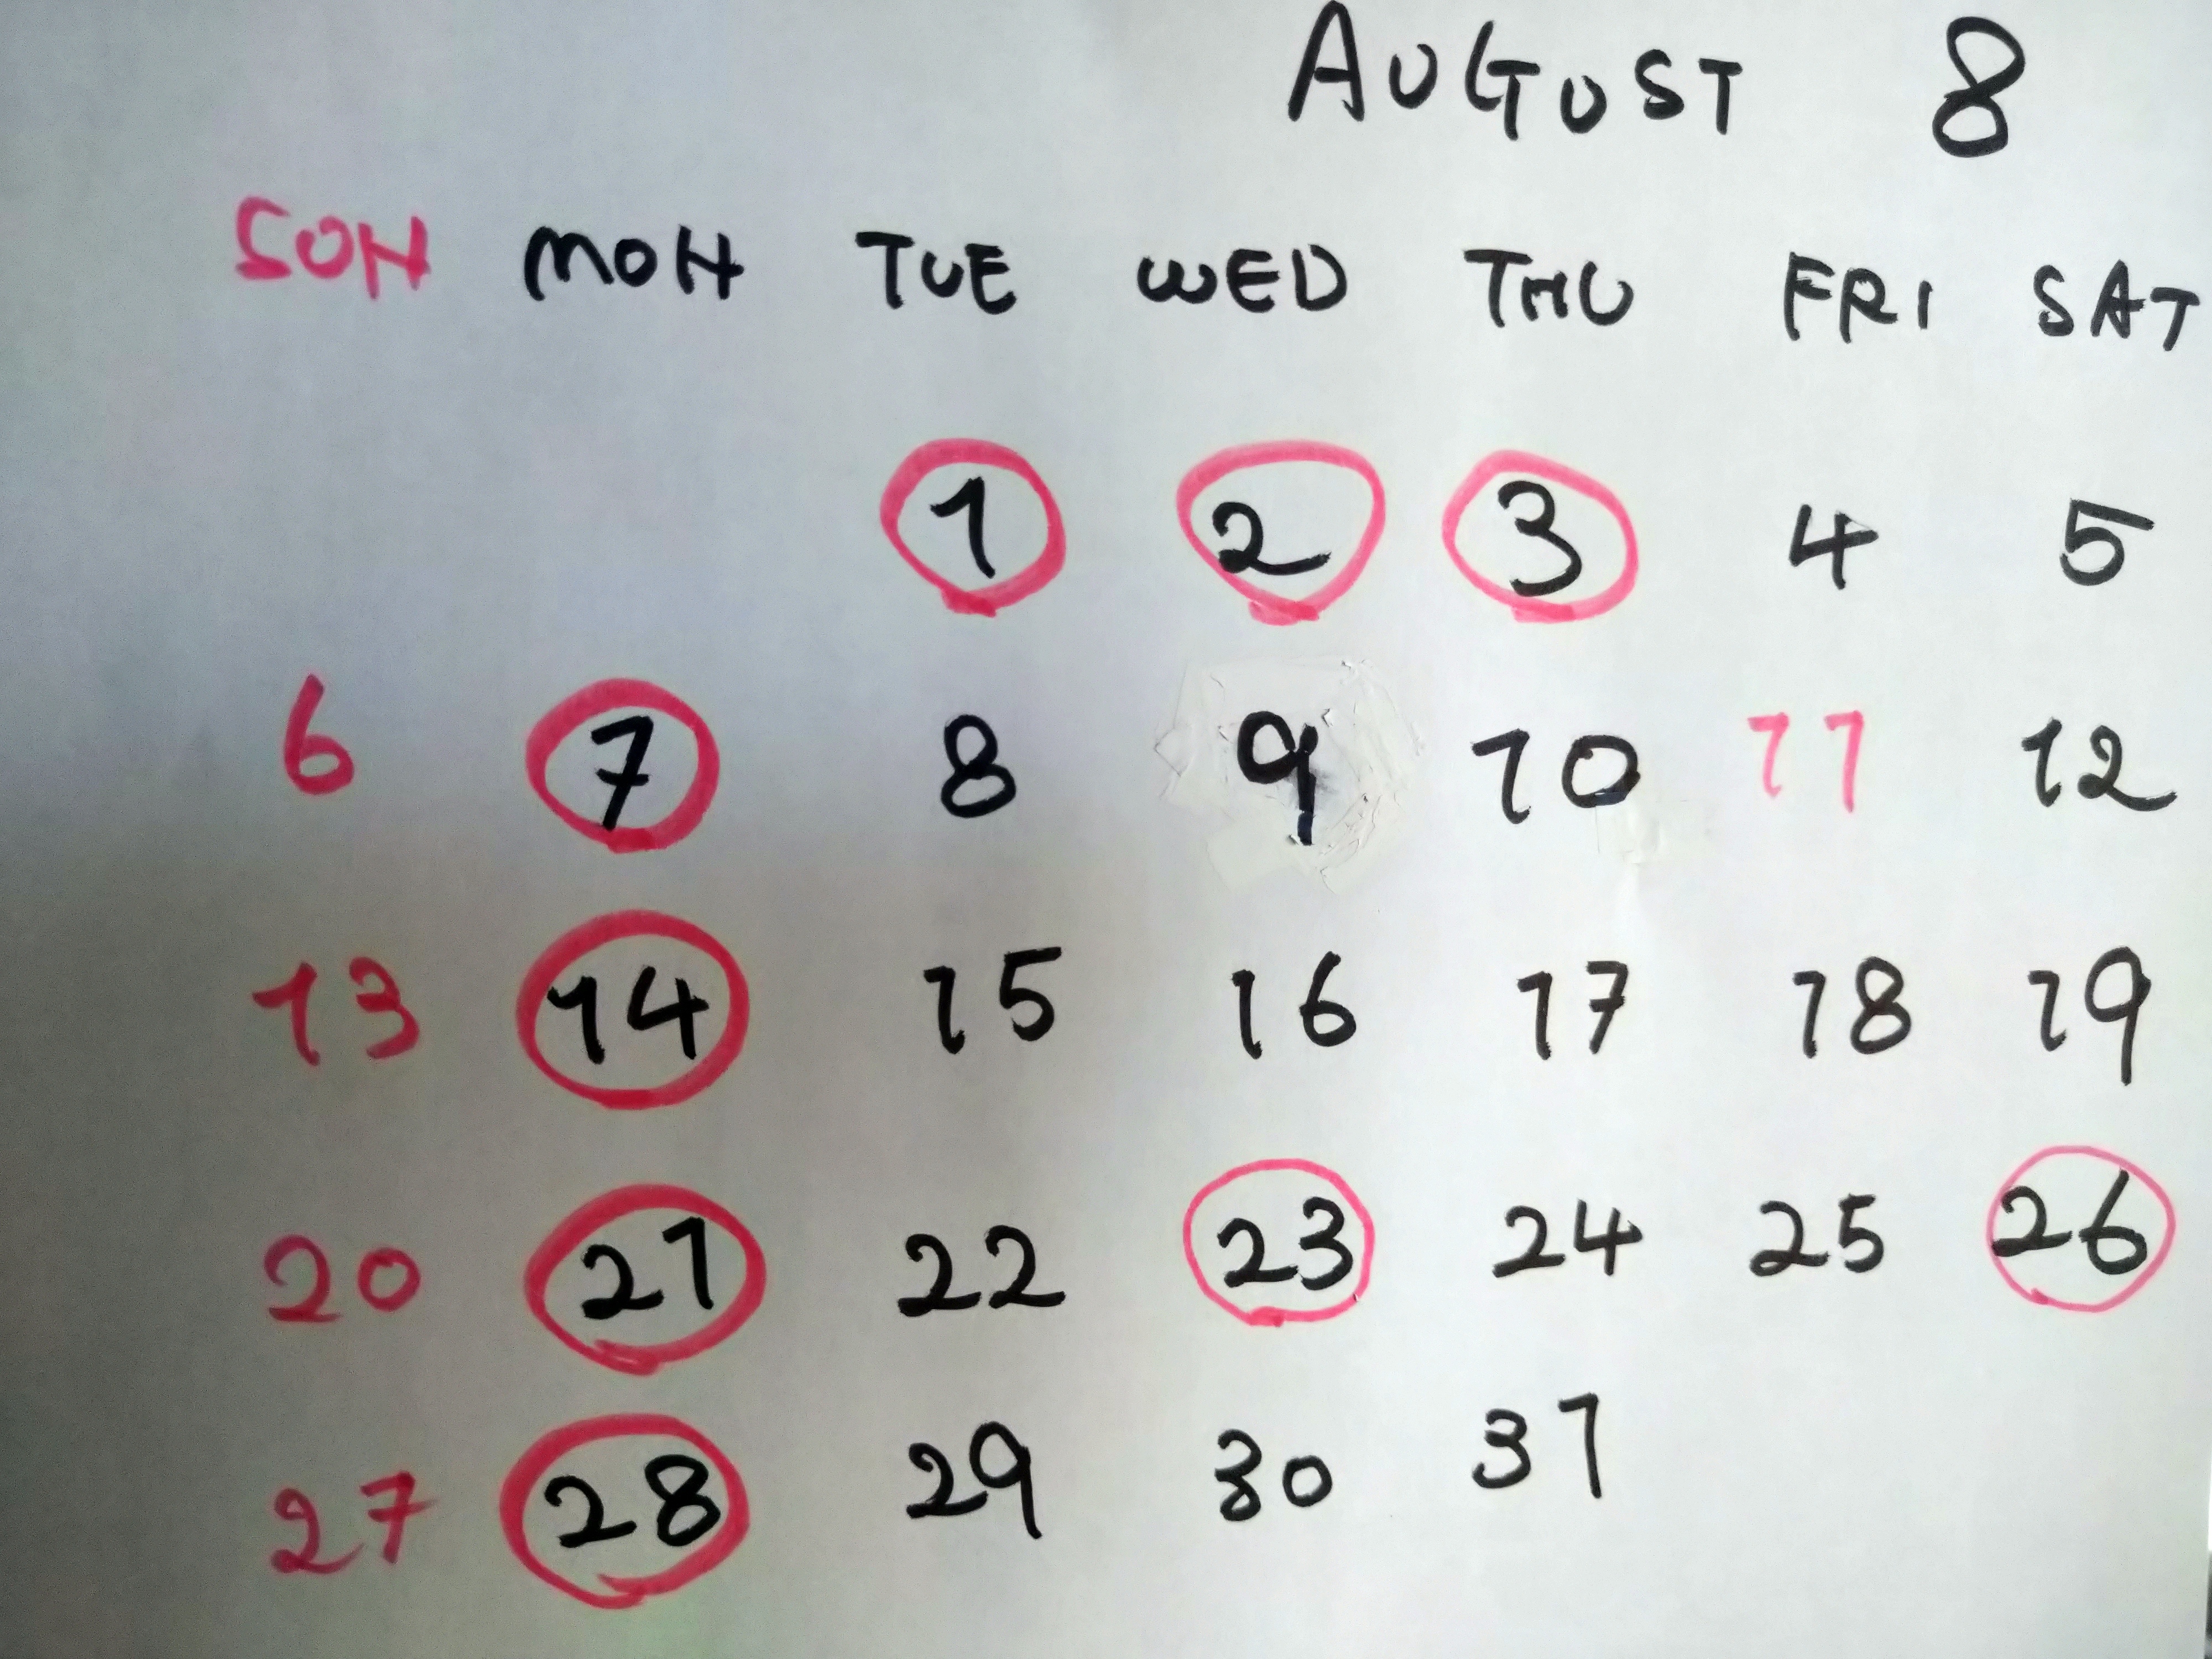 AUGUST 8
SUN MON TUE WED THU FRI SAT
1 2 3 4 5
6 7 8 9 10 11 12
13 14 15 16 17 18 19
20 21 22 23 24 25 26
27 28 29 30 31